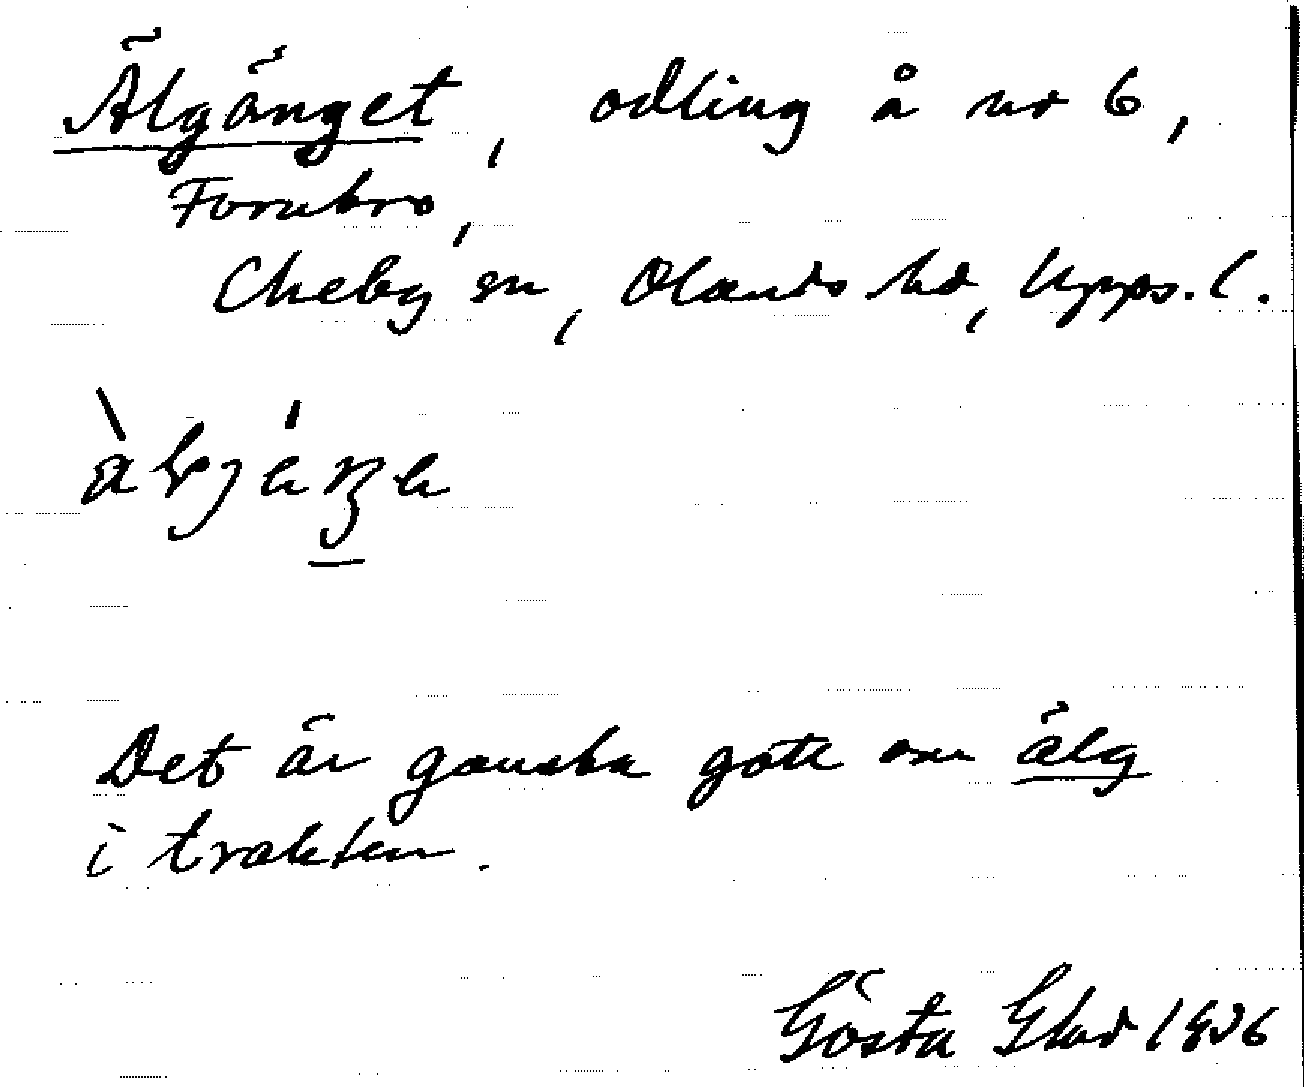 Älgänget, odling å nr 6,
Fornbro,
Cheby sn, Olands hd, Upps. l.
Det är ganska gott om älg
i trakten.
Gösta Glad 1936